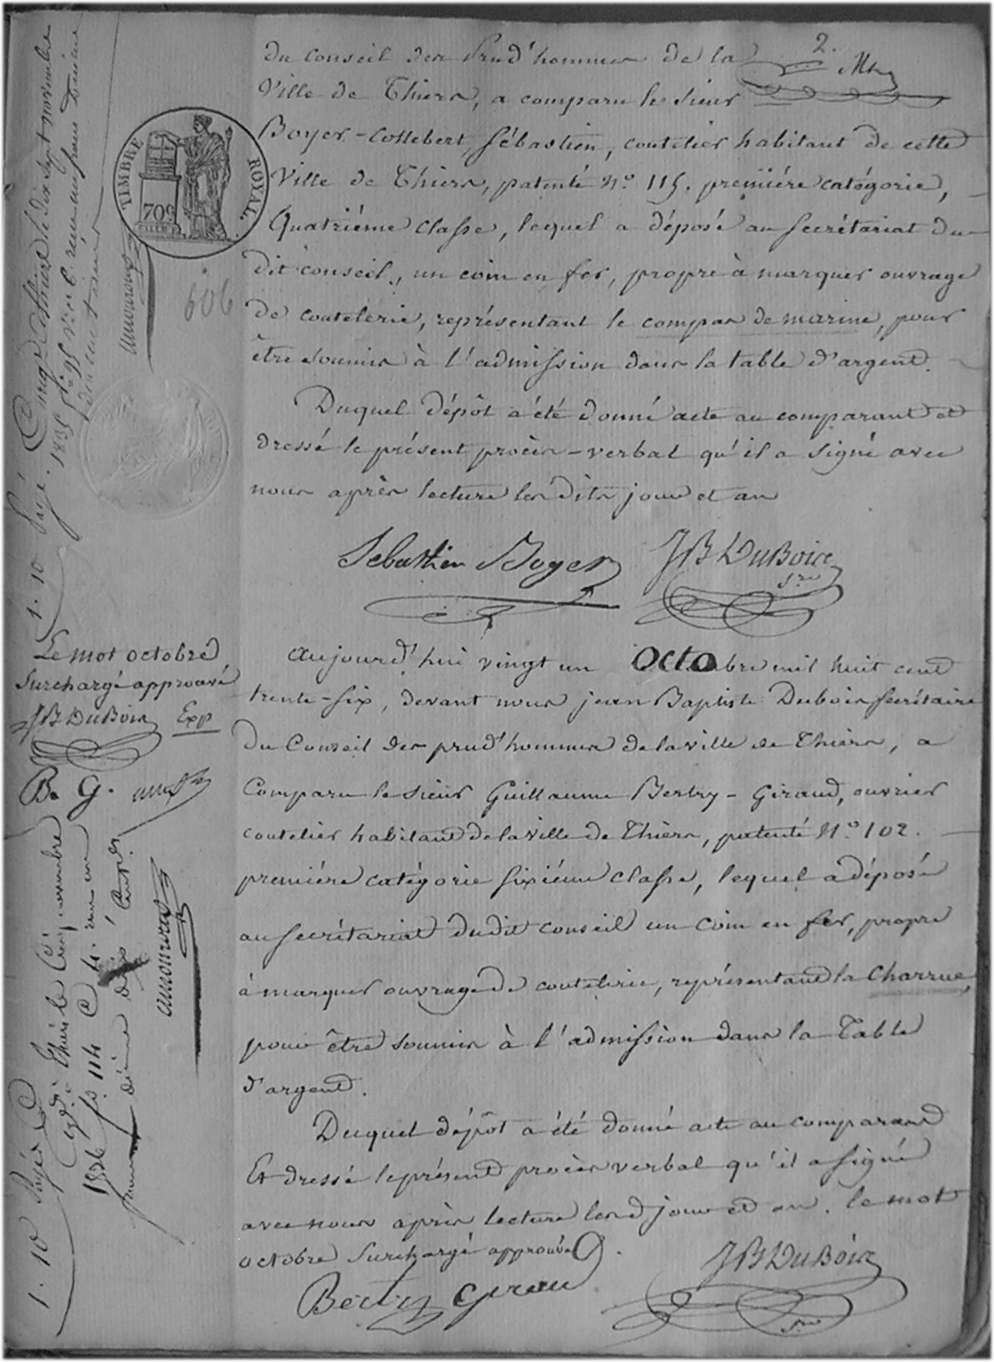 2.
du conseil des Prud'hommes de la
Ville de Thiers, a comparu le sieur
Boyer-Cottebert, Sébastien, coutelier habitant de cette
Ville de Thiers, patenté N.º 115. première catégorie,
Quatriéme classe, lequel a déposé au secrétariat du
dit conseil, un coin en fer, propre à marquer ouvrage
de coutelerie, représentant le compas de marine, pour
être soumis à l'admission dans la table d'argent.
Duquel dépôt a été donné acte au comparant et
dressé le présent procès-verbal qu'il a signé avec
nous après lecture les dits jour et an
Sebastien Boyer JB DuBois
Sre
TIMBRE ROYAL
70c
606
Le mot octobre
Surchargé approuvé
JB DuBois Exp
B. G.
aujourd'hui vingt un Octobre mil huit cent
trente-six, devant nous jean Baptiste Dubois secrétaire
du Conseil des prud'hommes de la ville de Thiers, a
Comparu le sieur Guillaume Bertry-Giraud, ouvrier
coutelier habitant de la ville de Thiers, patenté N.º 102.
première catégorie sixiéme classe, lequel a déposé
au secrétariat dudit conseil un Coin en fer, propre
à marquer ouvrage de coutelerie, représentant la Charrue,
pour être soumis à l'admission dans la Table
d'argent.
Duquel dépôt a été donné acte au comparant
Et dressé le présent procès verbal qu'il a signé
avec nous après lecture les d jour et an. le mot
octobre surchargé approuvé G.
Bertry Girau JB DuBois
Sre